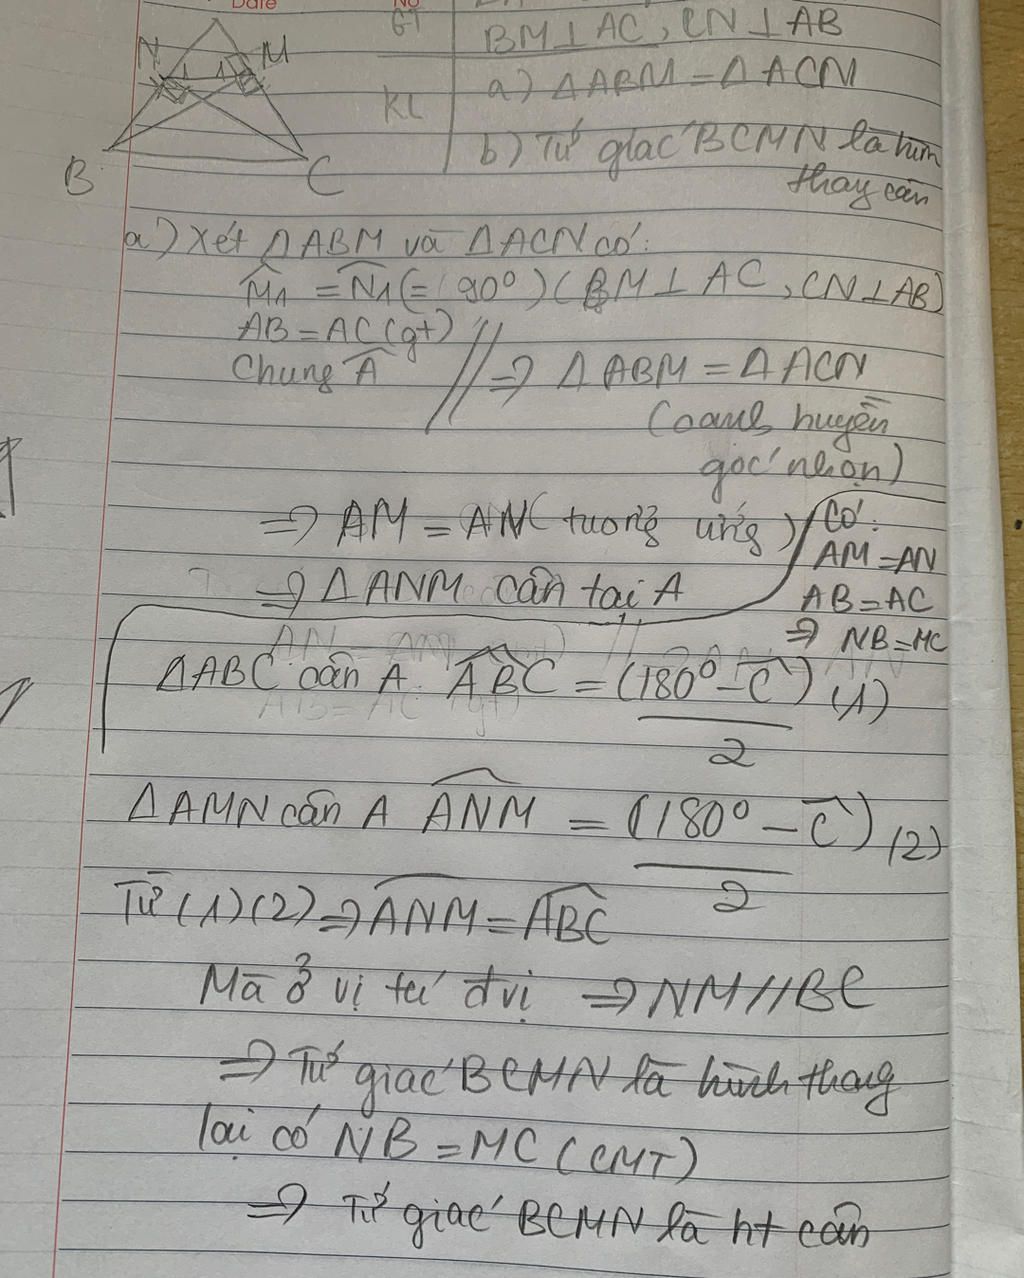 Date
No
GT
BM ⊥ AC, CN ⊥ AB
KL
a) ΔABM = ΔACN
b) Tứ giác BCMN là hìn
thay cân
N
M
1
1
B
C
a) Xét ΔABM và ΔACN có:
M̂1 = N̂1 (= 90°) (BM ⊥ AC, CN ⊥ AB)
AB = AC (gt)
Chung Â
=> ΔABM = ΔACN
(cạnh huyền
góc nhọn)
=> AM = AN (tương ứng)
=> ΔANM cân tại A
Có:
AM = AN
AB = AC
=> NB = MC
ΔABC cân A. ABC = (180° - C) (1)
2
ΔAMN cân A ANM = (180° - C) (2)
2
Từ (1)(2) => ANM = ABC
Mà ở vị trí đvị => NM // BC
=> Tứ giác BCMN là hình thang
lại có NB = MC (CMT)
=> Tứ giác BCMN là ht cân